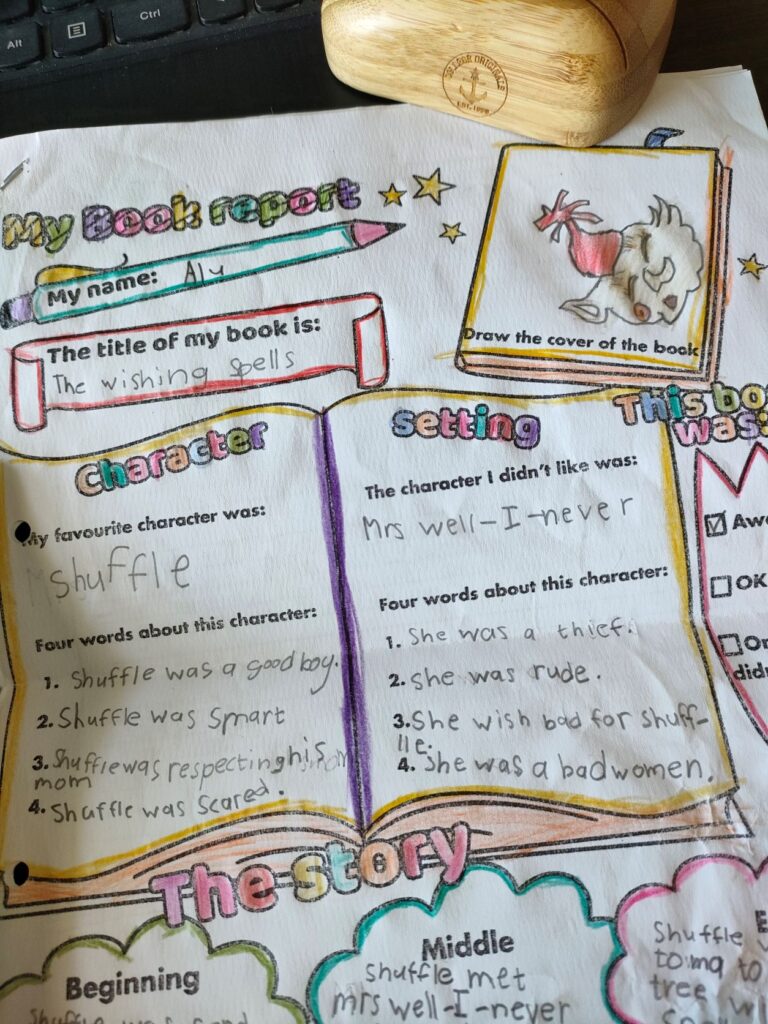 Alt
Ctrl
My Book report
My name: Alu
The title of my book is:
The wishing spells
Draw the cover of the book
Character
My favourite character was:
Shuffle
Four words about this character:
1. Shuffle was a good boy.
2. Shuffle was smart
3. Shuffle was respecting his mom
mom
4. Shuffle was scared.
setting
The character I didn't like was:
Mrs well-I-never
Four words about this character:
1. She was a thief.
2. she was rude.
3. She wish bad for shuff-
lle.
4. She was a bad women.
This bo
was:
Aw
OK
didn
The story
Beginning
Middle
shuffle met
mrs well-I-never
Shuffle
tree